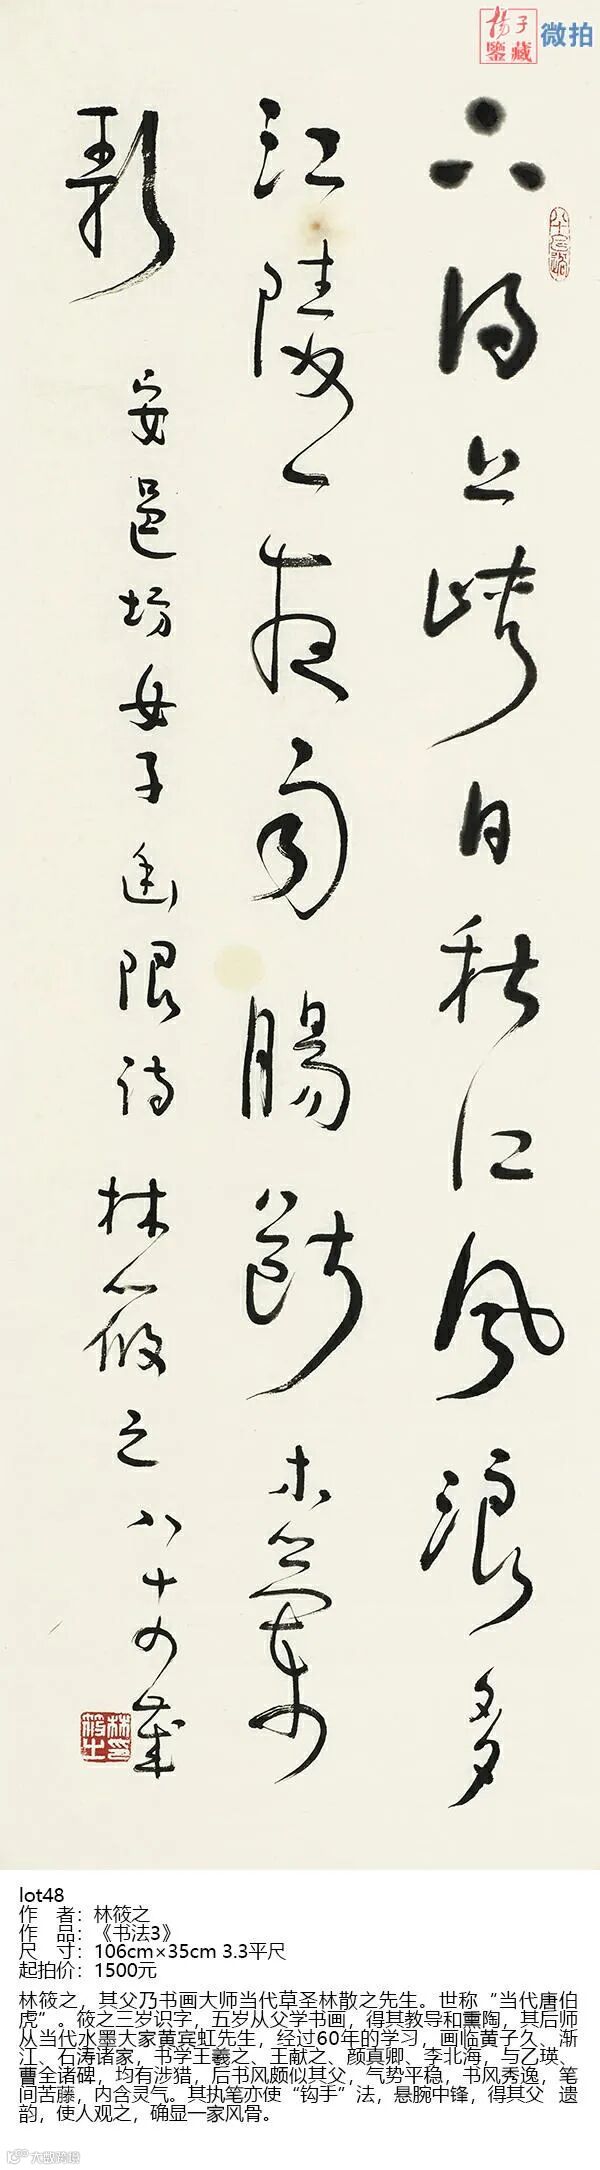 揚子鑒藏 微拍
卜得上峽日秋江風浪多
江陵一夜雨腸斷木蘭
歌
安邑坊女子幽恨詩 林筱之八十四歲
林筱之印
lot48
作 者：林筱之
作 品：《书法3》
尺 寸：106cm×35cm 3.3平尺
起拍价：1500元
林筱之，其父乃书画大师当代草圣林散之先生。世称“当代唐伯
虎”。筱之三岁识字，五岁从父学书画，得其教导和熏陶，其后师
从当代水墨大家黄宾虹先生，经过60年的学习，画临黄子久、渐
江、石涛诸家，书学王羲之、王献之、颜真卿、李北海，与乙瑛、
曹全诸碑，均有涉猎，后书风颇似其父，气势平稳，书风秀逸，笔
间苦藤，内含灵气。其执笔亦使“钩手”法，悬腕中锋，得其父 遗
韵，使人观之，确显一家风骨。
大数跨境